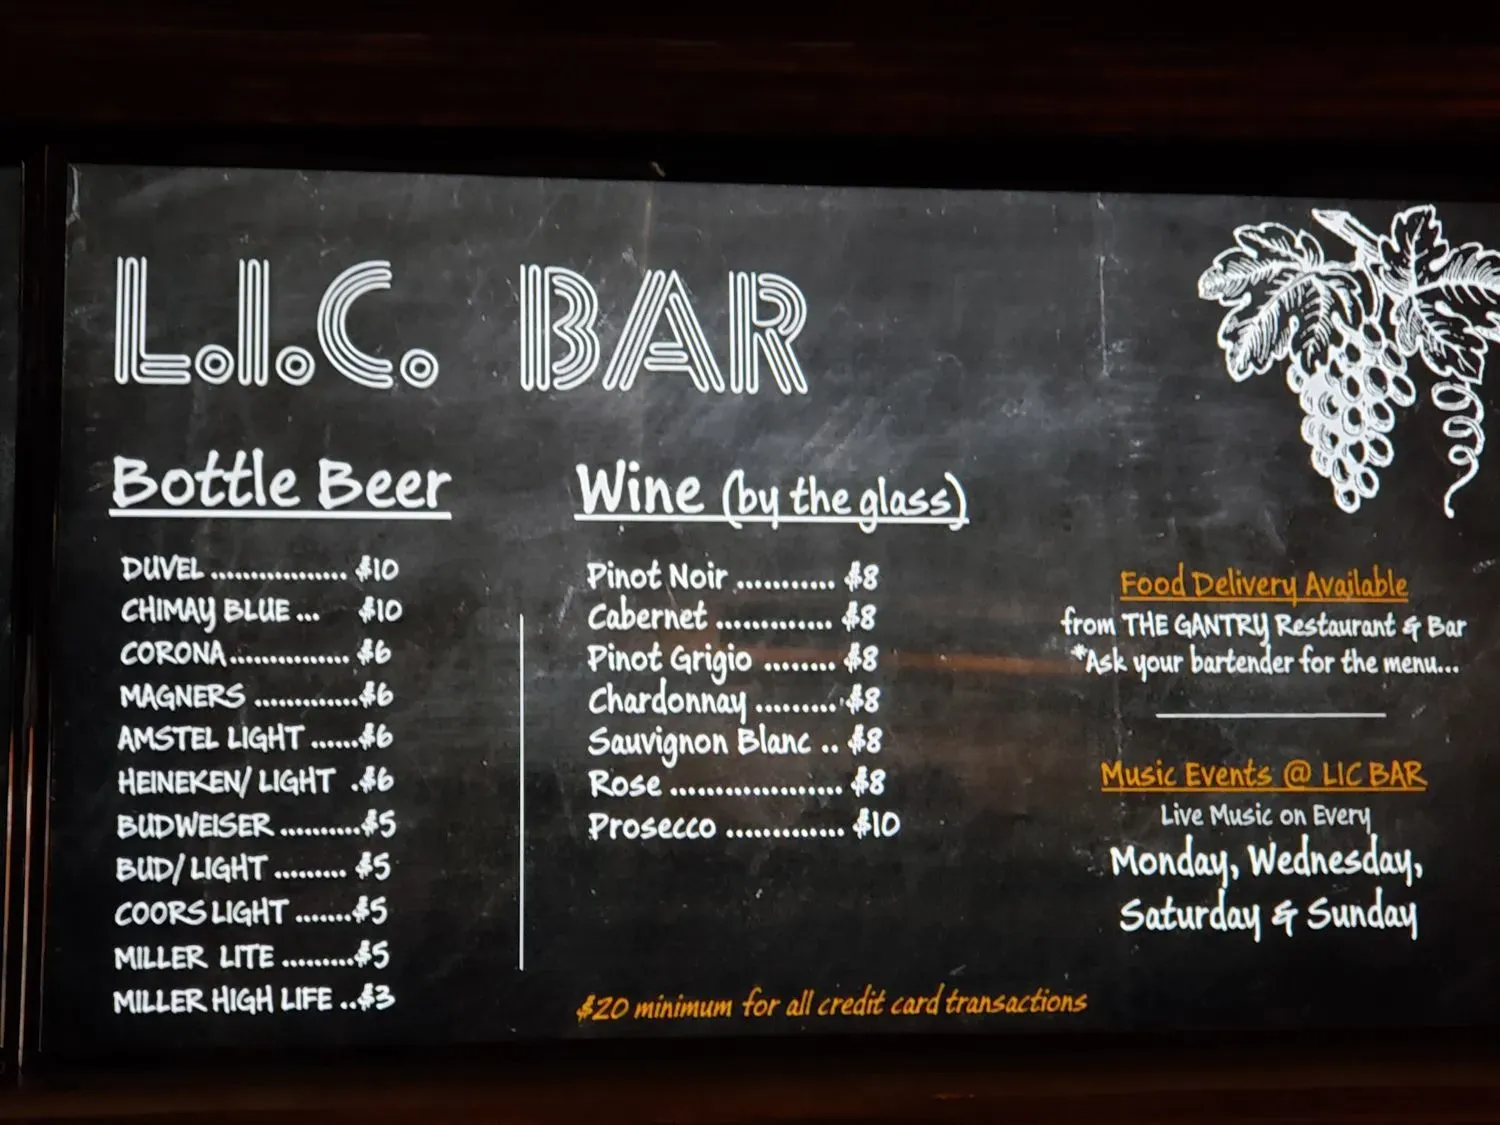 L.I.C. BAR
Bottle Beer
DUVEL ................. $10
CHIMAY BLUE ... $10
CORONA............... $6
MAGNERS .............$6
AMSTEL LIGHT ......$6
HEINEKEN/ LIGHT .$6
BUDWEISER ..........$5
BUD/ LIGHT ......... $5
COORS LIGHT .......$5
MILLER LITE .........$5
MILLER HIGH LIFE ..$3
Wine (by the glass)
Pinot Noir ........... $8
Cabernet ............. $8
Pinot Grigio ........ $8
Chardonnay ..........$8
Sauvignon Blanc .. $8
Rose ..................... $8
Prosecco .............. $10
$20 minimum for all credit card transactions
Food Delivery Available
from THE GANTRY Restaurant & Bar
*Ask your bartender for the menu...
Music Events @ LIC BAR
Live Music on Every
Monday, Wednesday,
Saturday & Sunday